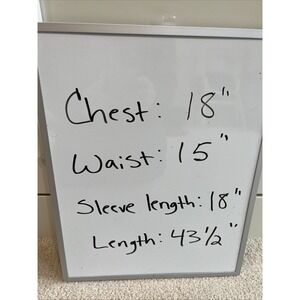 Chest: 18"
Waist: 15"
Sleeve length: 18"
Length: 43½"